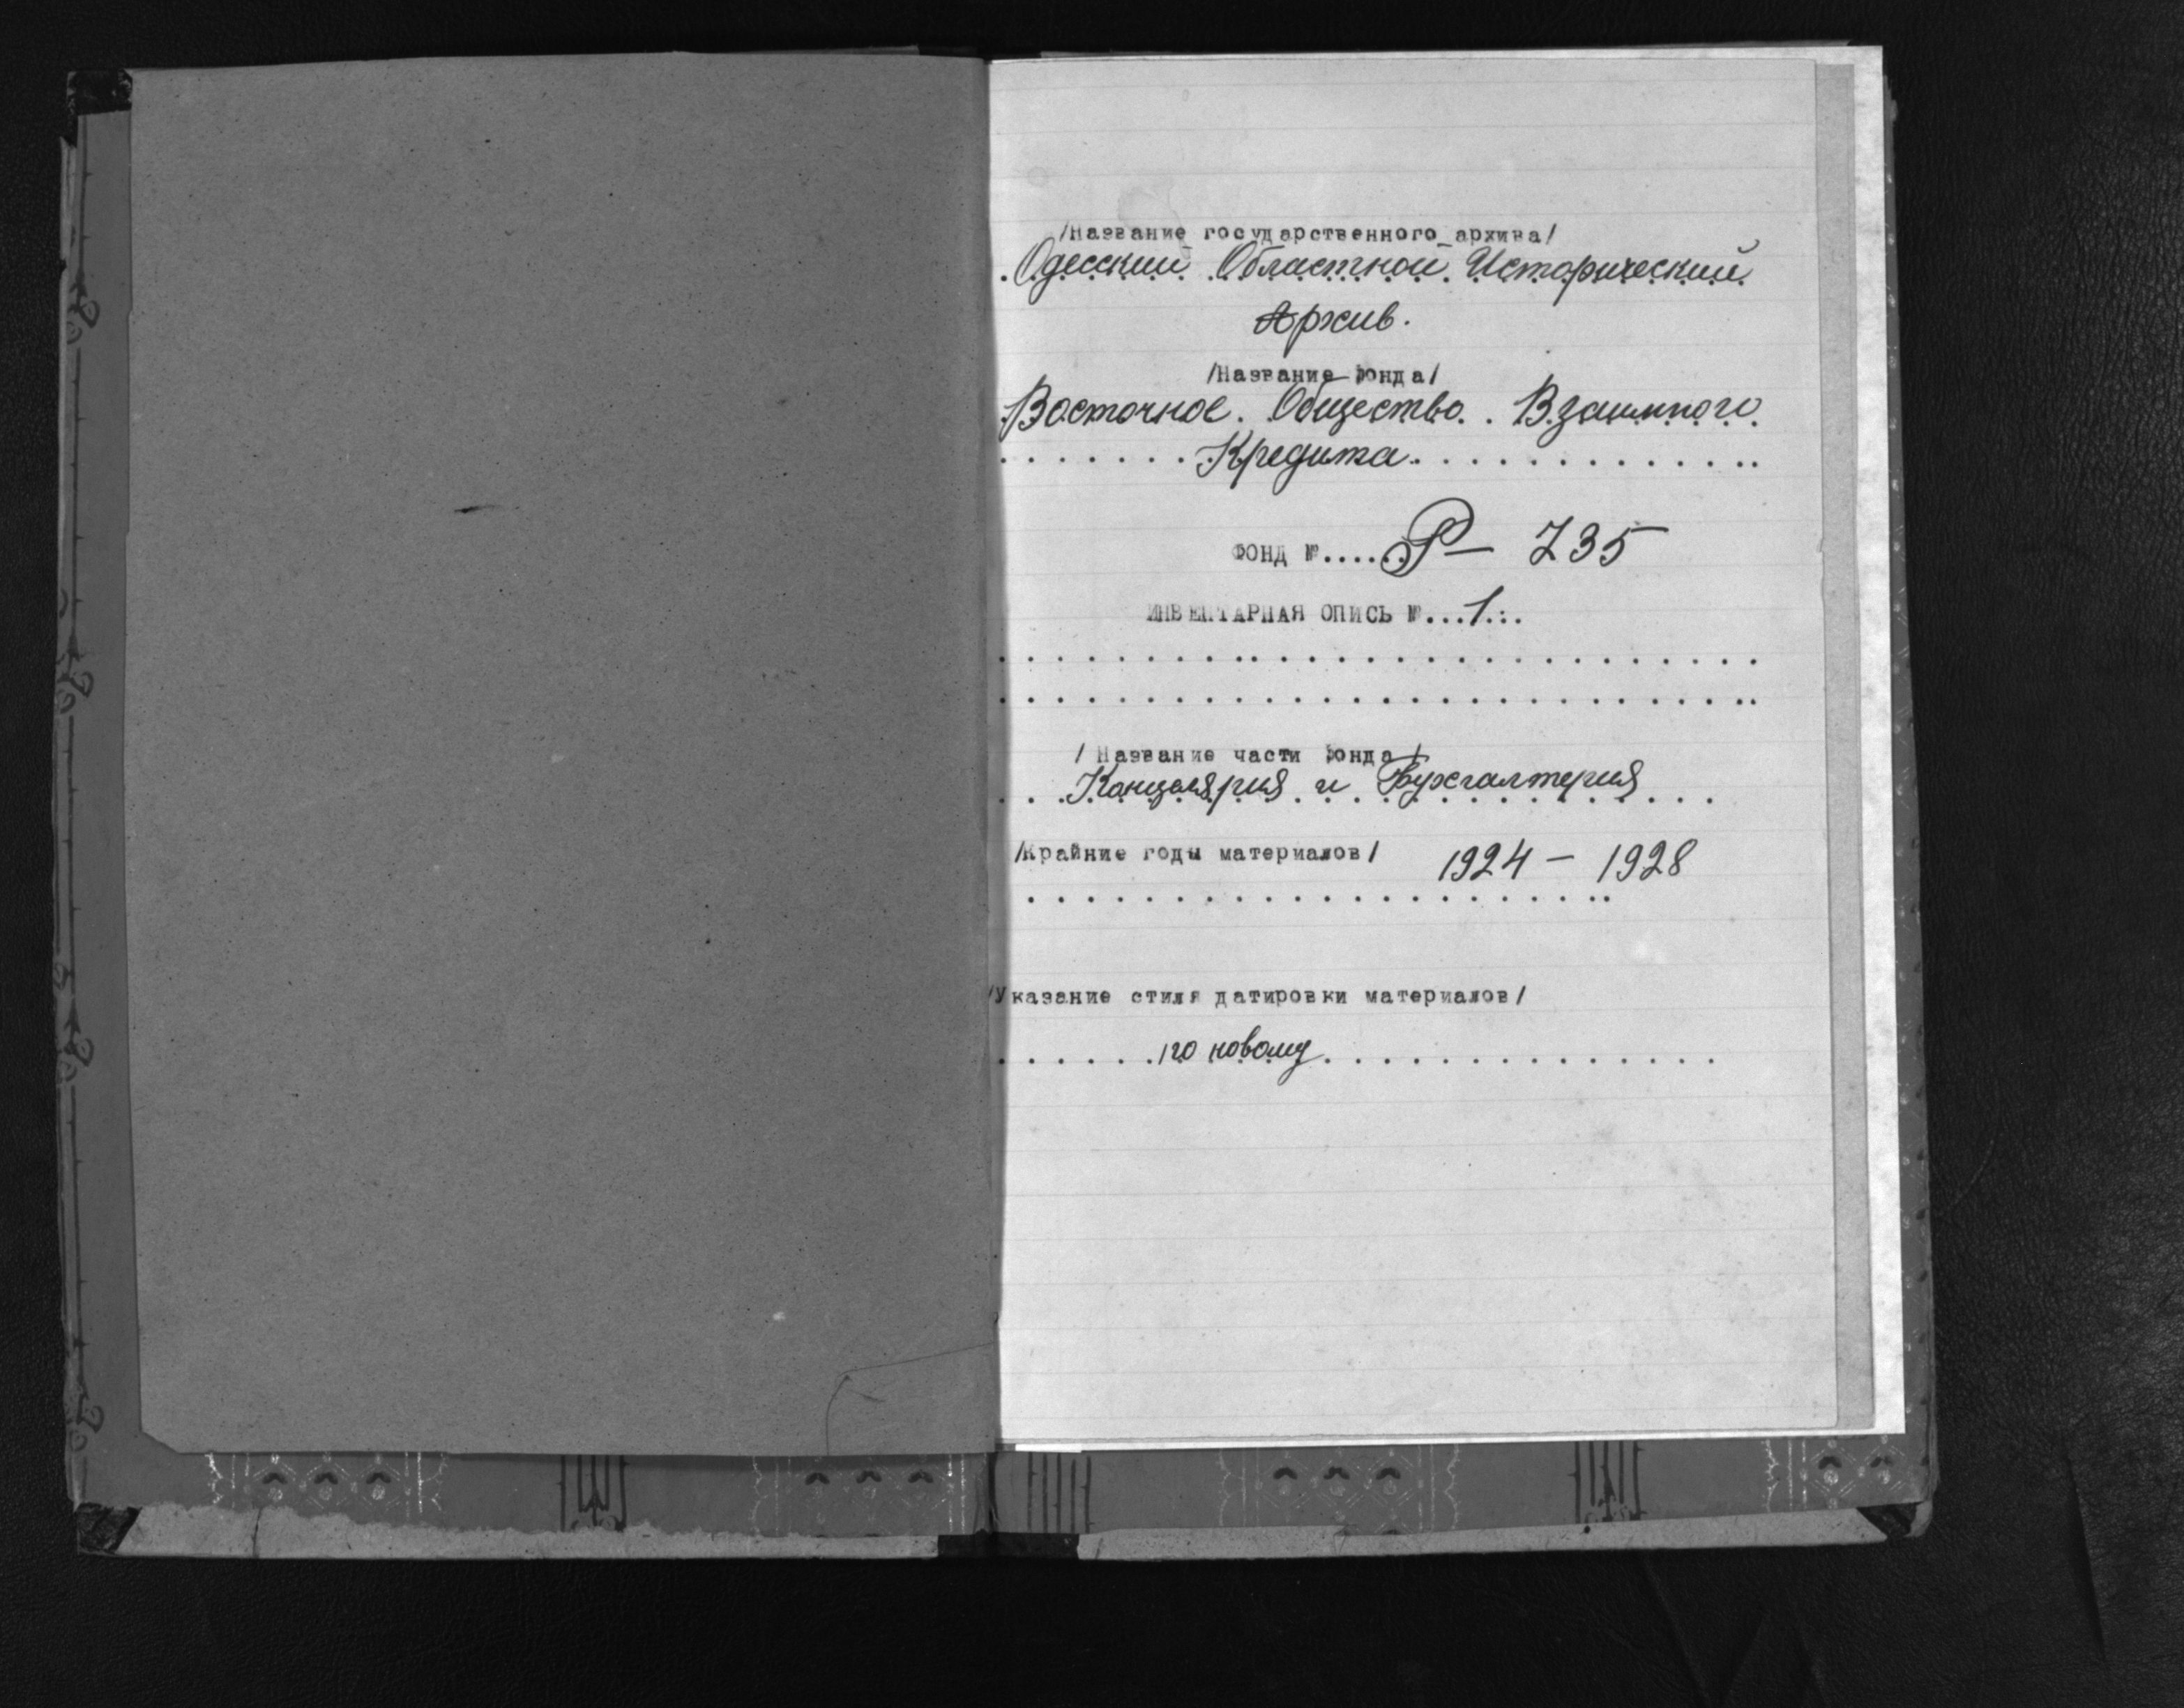 /Название государственного архива/
Одесский Областной Исторический
Архив.
/Название фонда/
Восточное Общество Взаимного
Кредита
ФОНД №.....Р- 735
ИНВЕНТАРНАЯ ОПИСЬ №...1...
/Название части фонда/
Канцелярия и Бухгалтерия
/Крайние годы материалов/ 1924 - 1928
/Указание стиля датировки материалов/
по новому